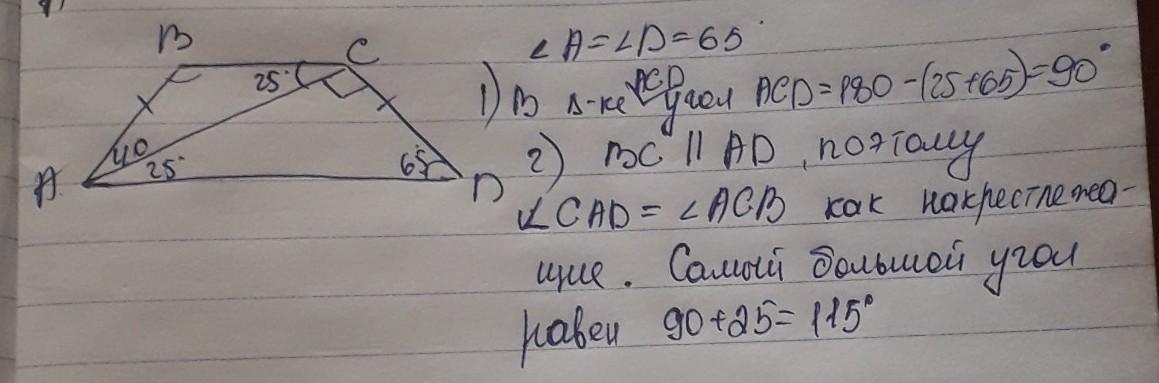 B
C
25°
40
25°
65°
A
D
∠A=∠D=65°
1) В Δ-ке ACD угол ACD=180-(25+65)=90°
2) BC || AD, поэтому
∠CAD = ∠ACB как накрестлежа-
щие. Самый большой угол
равен 90+25=115°